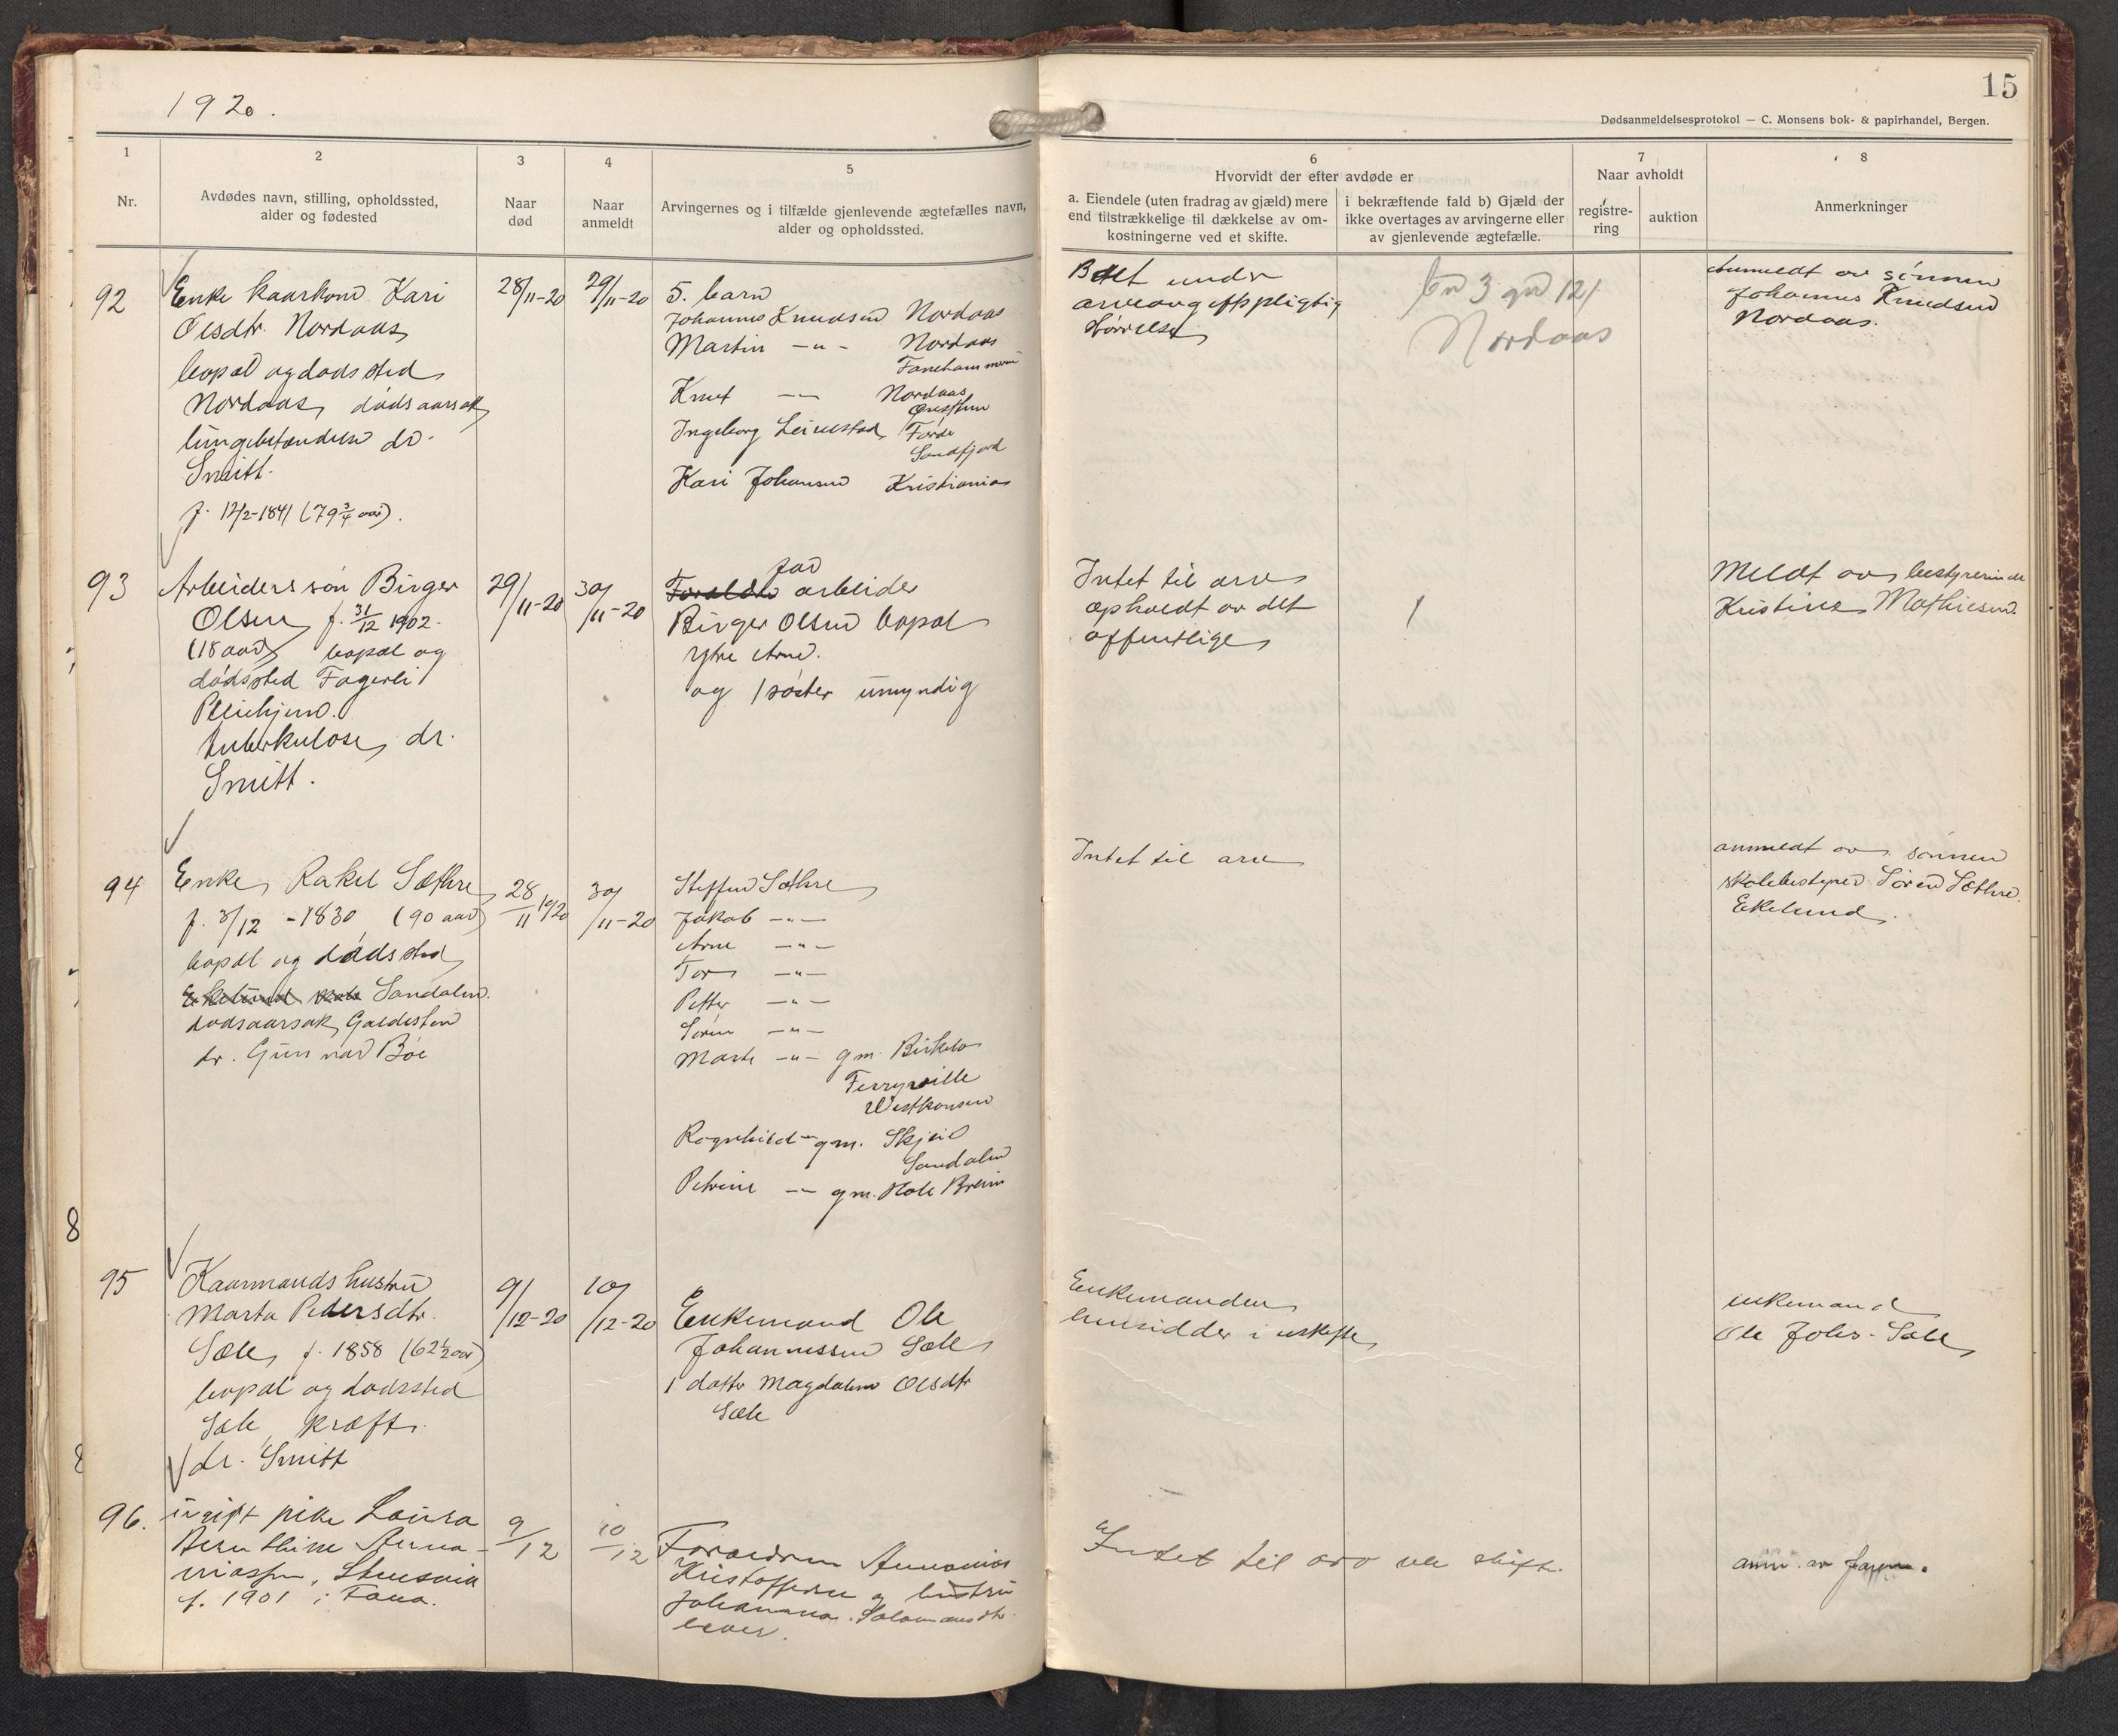 1920.
15
Dødsanmeldelsesprotokol — C. Monsens bok- & papirhandel, Bergen.
1
Nr.
2
Avdødes navn, stilling, opholdssted,
alder og fødested
3
Naar
død
4
Naar
anmeldt
5
Arvingernes og i tilfælde gjenlevende ægtefælles navn,
alder og opholdssted.
6
Hvorvidt der efter avdøde er
a. Eiendele (uten fradrag av gjæld) mere
end tilstrækkelige til dækkelse av om-
kostningerne ved et skifte.
i bekræftende fald b) Gjæld der
ikke overtages av arvingerne eller
av gjenlevende ægtefælle.
7
Naar avholdt
registre-
ring
auktion
8
Anmerkninger
92
Enke kaarkone Kari
Olsdtr. Nordaas
bopæl og dødssted
Nordaas, dødsaarsak
lungebetændelse dr.
Smitt.
f. 12/2-1841 (79 3/4 aar).
28/11-20
29/11-20
5. barn
Johannes Knudsen Nordaas
Martin -"- Nordaas
Fanehammeren
Knut -"- Nordaas
Ingeborg Leirestad, Førde
Søndfjord
Kari Johansen Kristiania
under
arveavgiftspligtig
størrelse
bn 3 gn 121
Nordaas
Anmeldt av sønnen
Johannes Knudsen
Nordaas.
93
Arbeiders søn Birger
Olsen f. 31/12 1902.
(18 aar) bopæl og
dødssted Fagerli
Pleiehjem.
tuberkulose, dr.
Smitt.
29/11-20
30/11-20
far
Forældre arbeider
Birger Olsen bopæl
Ytre Arne.
og 1 søster umyndig
Intet til arv
opholdt av det
offentlige
Meldt av bestyrerinde
Kristine Mathiesen.
94
Enke, Rakel Sæthre
f. 3/12 - 1830, (90 aar)
bopæl og dødssted
Ekelund skole Sandalen.
dødsaarsak, Galdesten
dr. Gunnar Bøe
28/11 1920
30/11-20
Steffen Sæthre
Jakob -"-
Arne -"-
Tor -"-
Petter -"-
Søren -"-
Marte -"- gm. Birkelo
Ferryville
Westkonsen
Ragnhild -"- gm. Skjeil
Sandalen
Petrine -"- gm. Hole Breim
Intet til arv
anmeldt av sønnen
skolebestyrer Søren Sæthre.
Ekelund.
95
Kaarmands hustru
Marta Pedersdtr.
Sæle, f. 1858 (62 1/2 aar)
bopæl og dødssted
Sæle, kræft.
dr. Smitt
9/12-20
10/12-20
Enkemand Ole
Johannessen Sæle
1 datter Magdalene Olsdtr
Sæle
Enkemanden
hensidder i uskifte
enkemand
Ole Johs. Sæle
96.
ugift pike Laura
Bernthine Anna-
niasen, Steensvik
f. 1901 i Fana.
9/12
10/12
Forældrene Annanias
Kristoffersen og hustru
Johanna Salomonsdtr.
lever.
Intet til arv ell skifte.
anm. av faren.